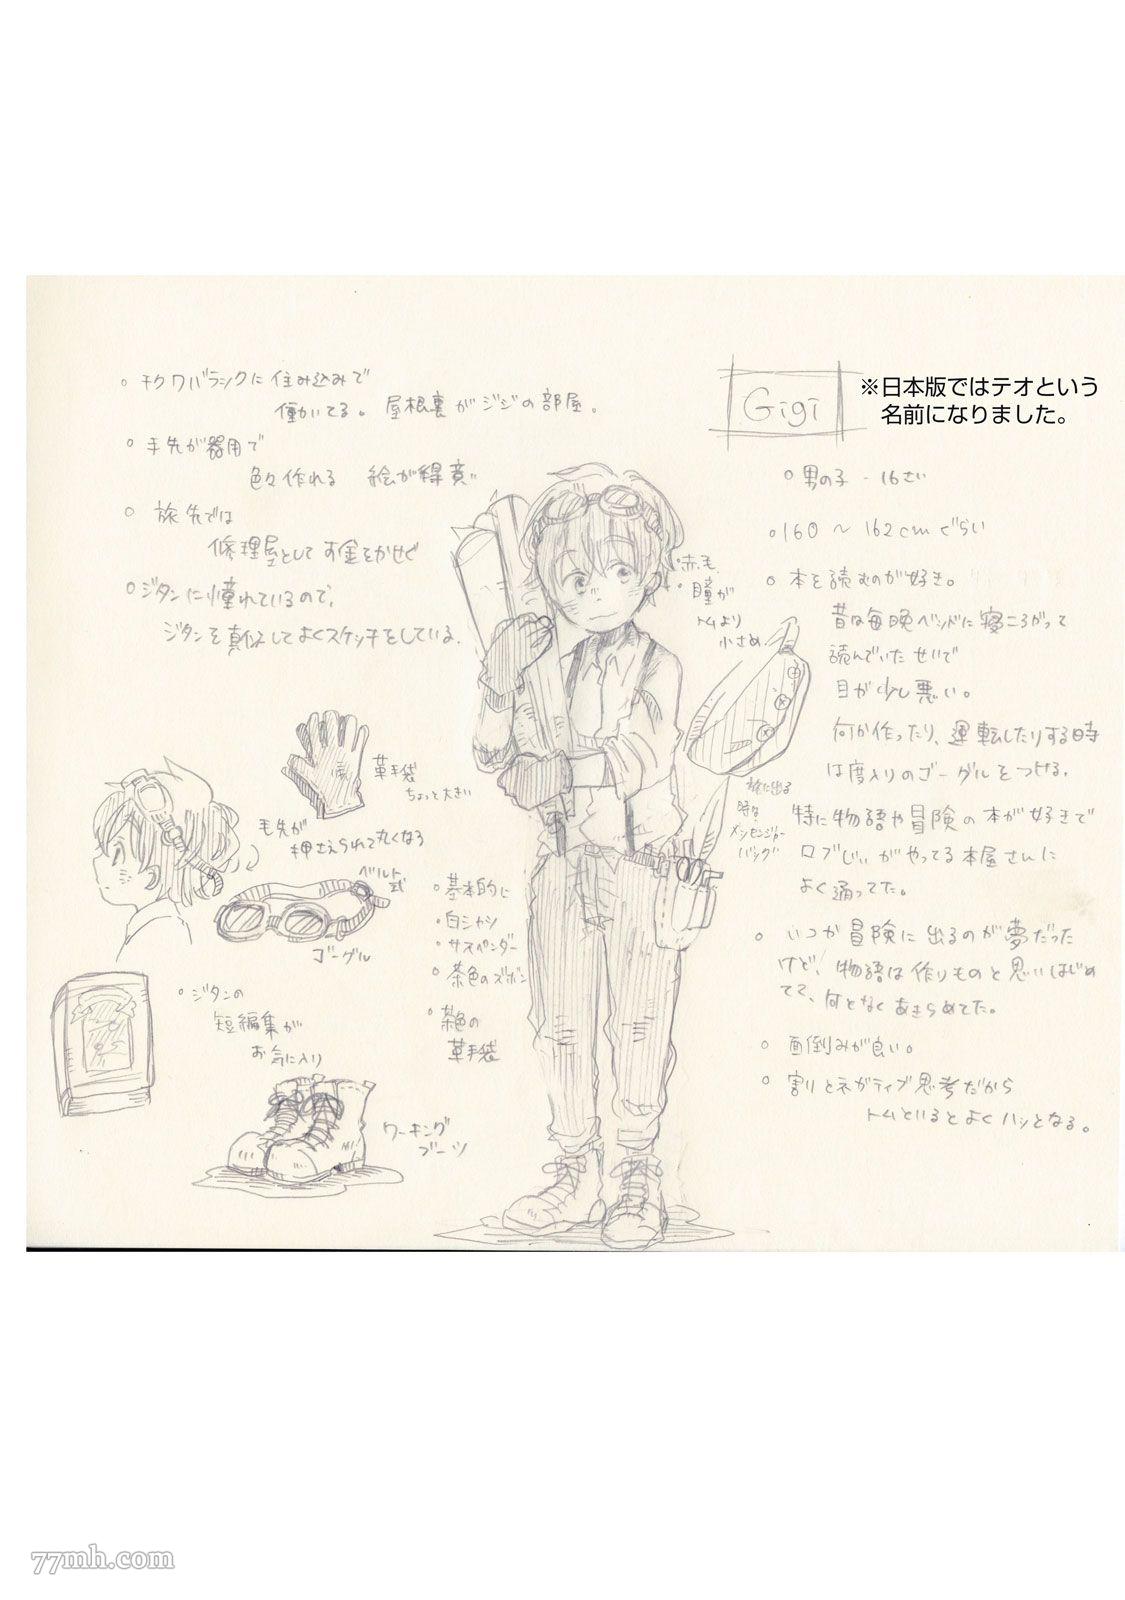 Gigi
※日本版ではテオという
名前になりました。
○チクワバランクに住み込みで
働いてる。屋根裏がジジの部屋。
○手先が器用で
色々作れる 絵が得意
○旅先では
修理屋として お金をかせぐ
○ジタンに憧れているので、
ジタンを真似してよくスケッチをしている.
○男の子 - 16さい
○160〜162cmぐらい
○本を読むのが好き。
昔は毎晩ベッドに寝ころがって
読んでいたせいで
目が少し悪い。
何か作ったり、運転したりする時
は度入りのゴーグルをつける.
特に物語や冒険の本が好きで
ロブじいがやってる本屋さんに
よく通ってた。
○いつか冒険に出るのが夢だった
けど、物語は作りものと思いはじめ
てて、何となくあきらめてた。
○面倒みが良い。
○割とネガティブ思考だから
トムといるとよくハッとなる。
・赤毛.
・瞳が
トムより
小さめ
旅に出る
時な
メッセンジャー
バッグ
革手袋
ちょっと大きい
毛先が
押さえられて丸くなる
ベルト
式
ゴーグル
・基本的に
・白シャツ
・サスペンダー
・茶色のズボン
・茶色の
革手袋
○ジタンの
短編集が
お気に入り
ワーキング
ブーツ
77mh.com